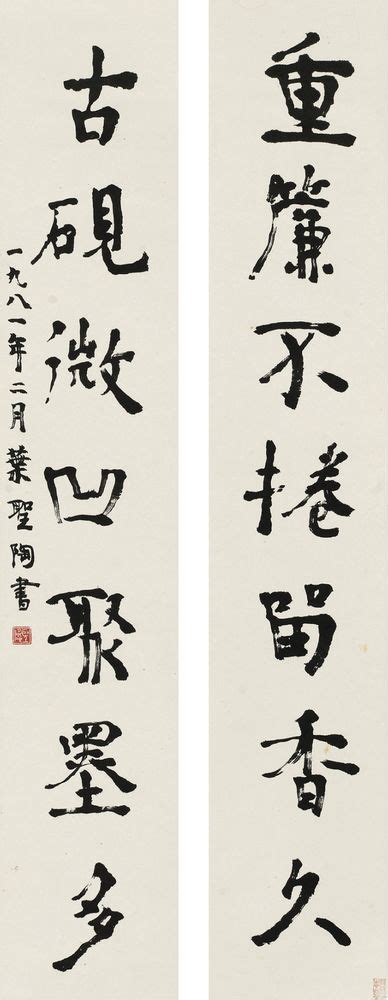 重簾不捲留香久
古硯微凹聚墨多
一九八一年二月葉聖陶書